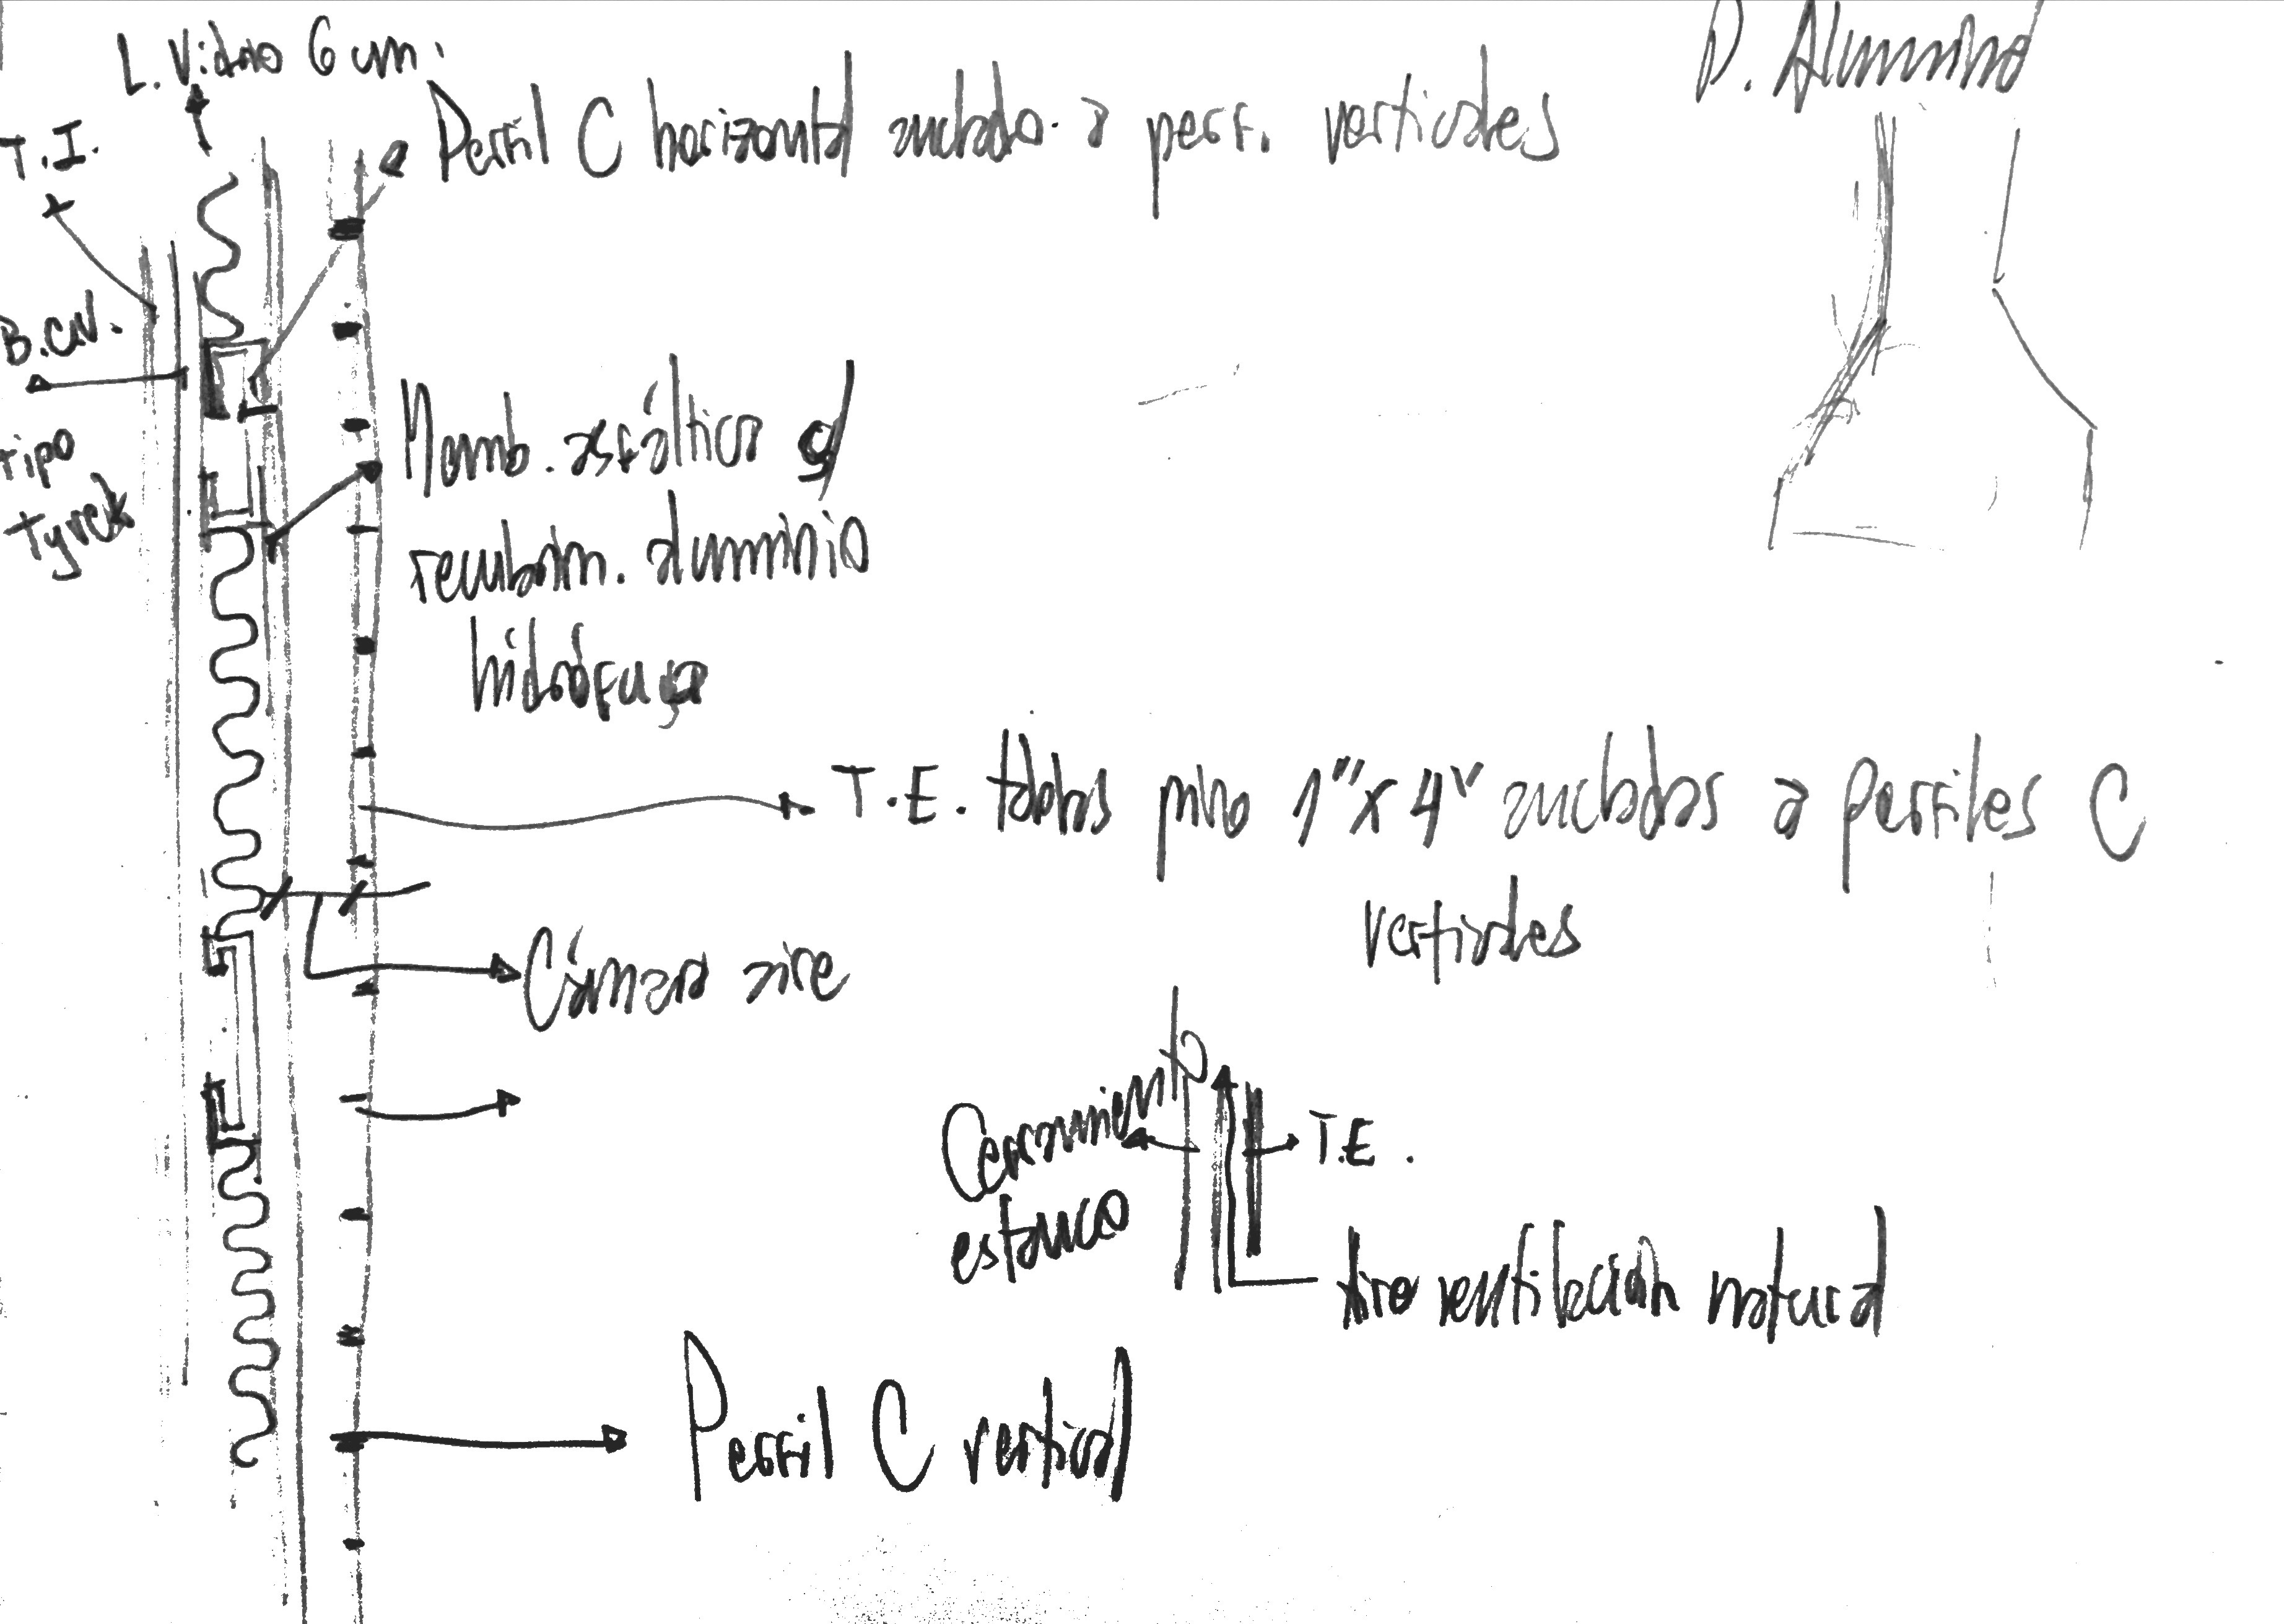 L. Vidrio 6 cm.
P. Aluminio
T.I.
Perfil C horizontal anclado a perf. verticales
B.C.V.
tipo
tyvek
Memb. asfáltica c/
recubrim. aluminio
hidrófuga
T.E. tablas pino 1"x4" ancladas a perfiles C
verticales
Cámara aire
Cerramiento
estanco
T.E.
tiro ventilación natural
Perfil C vertical